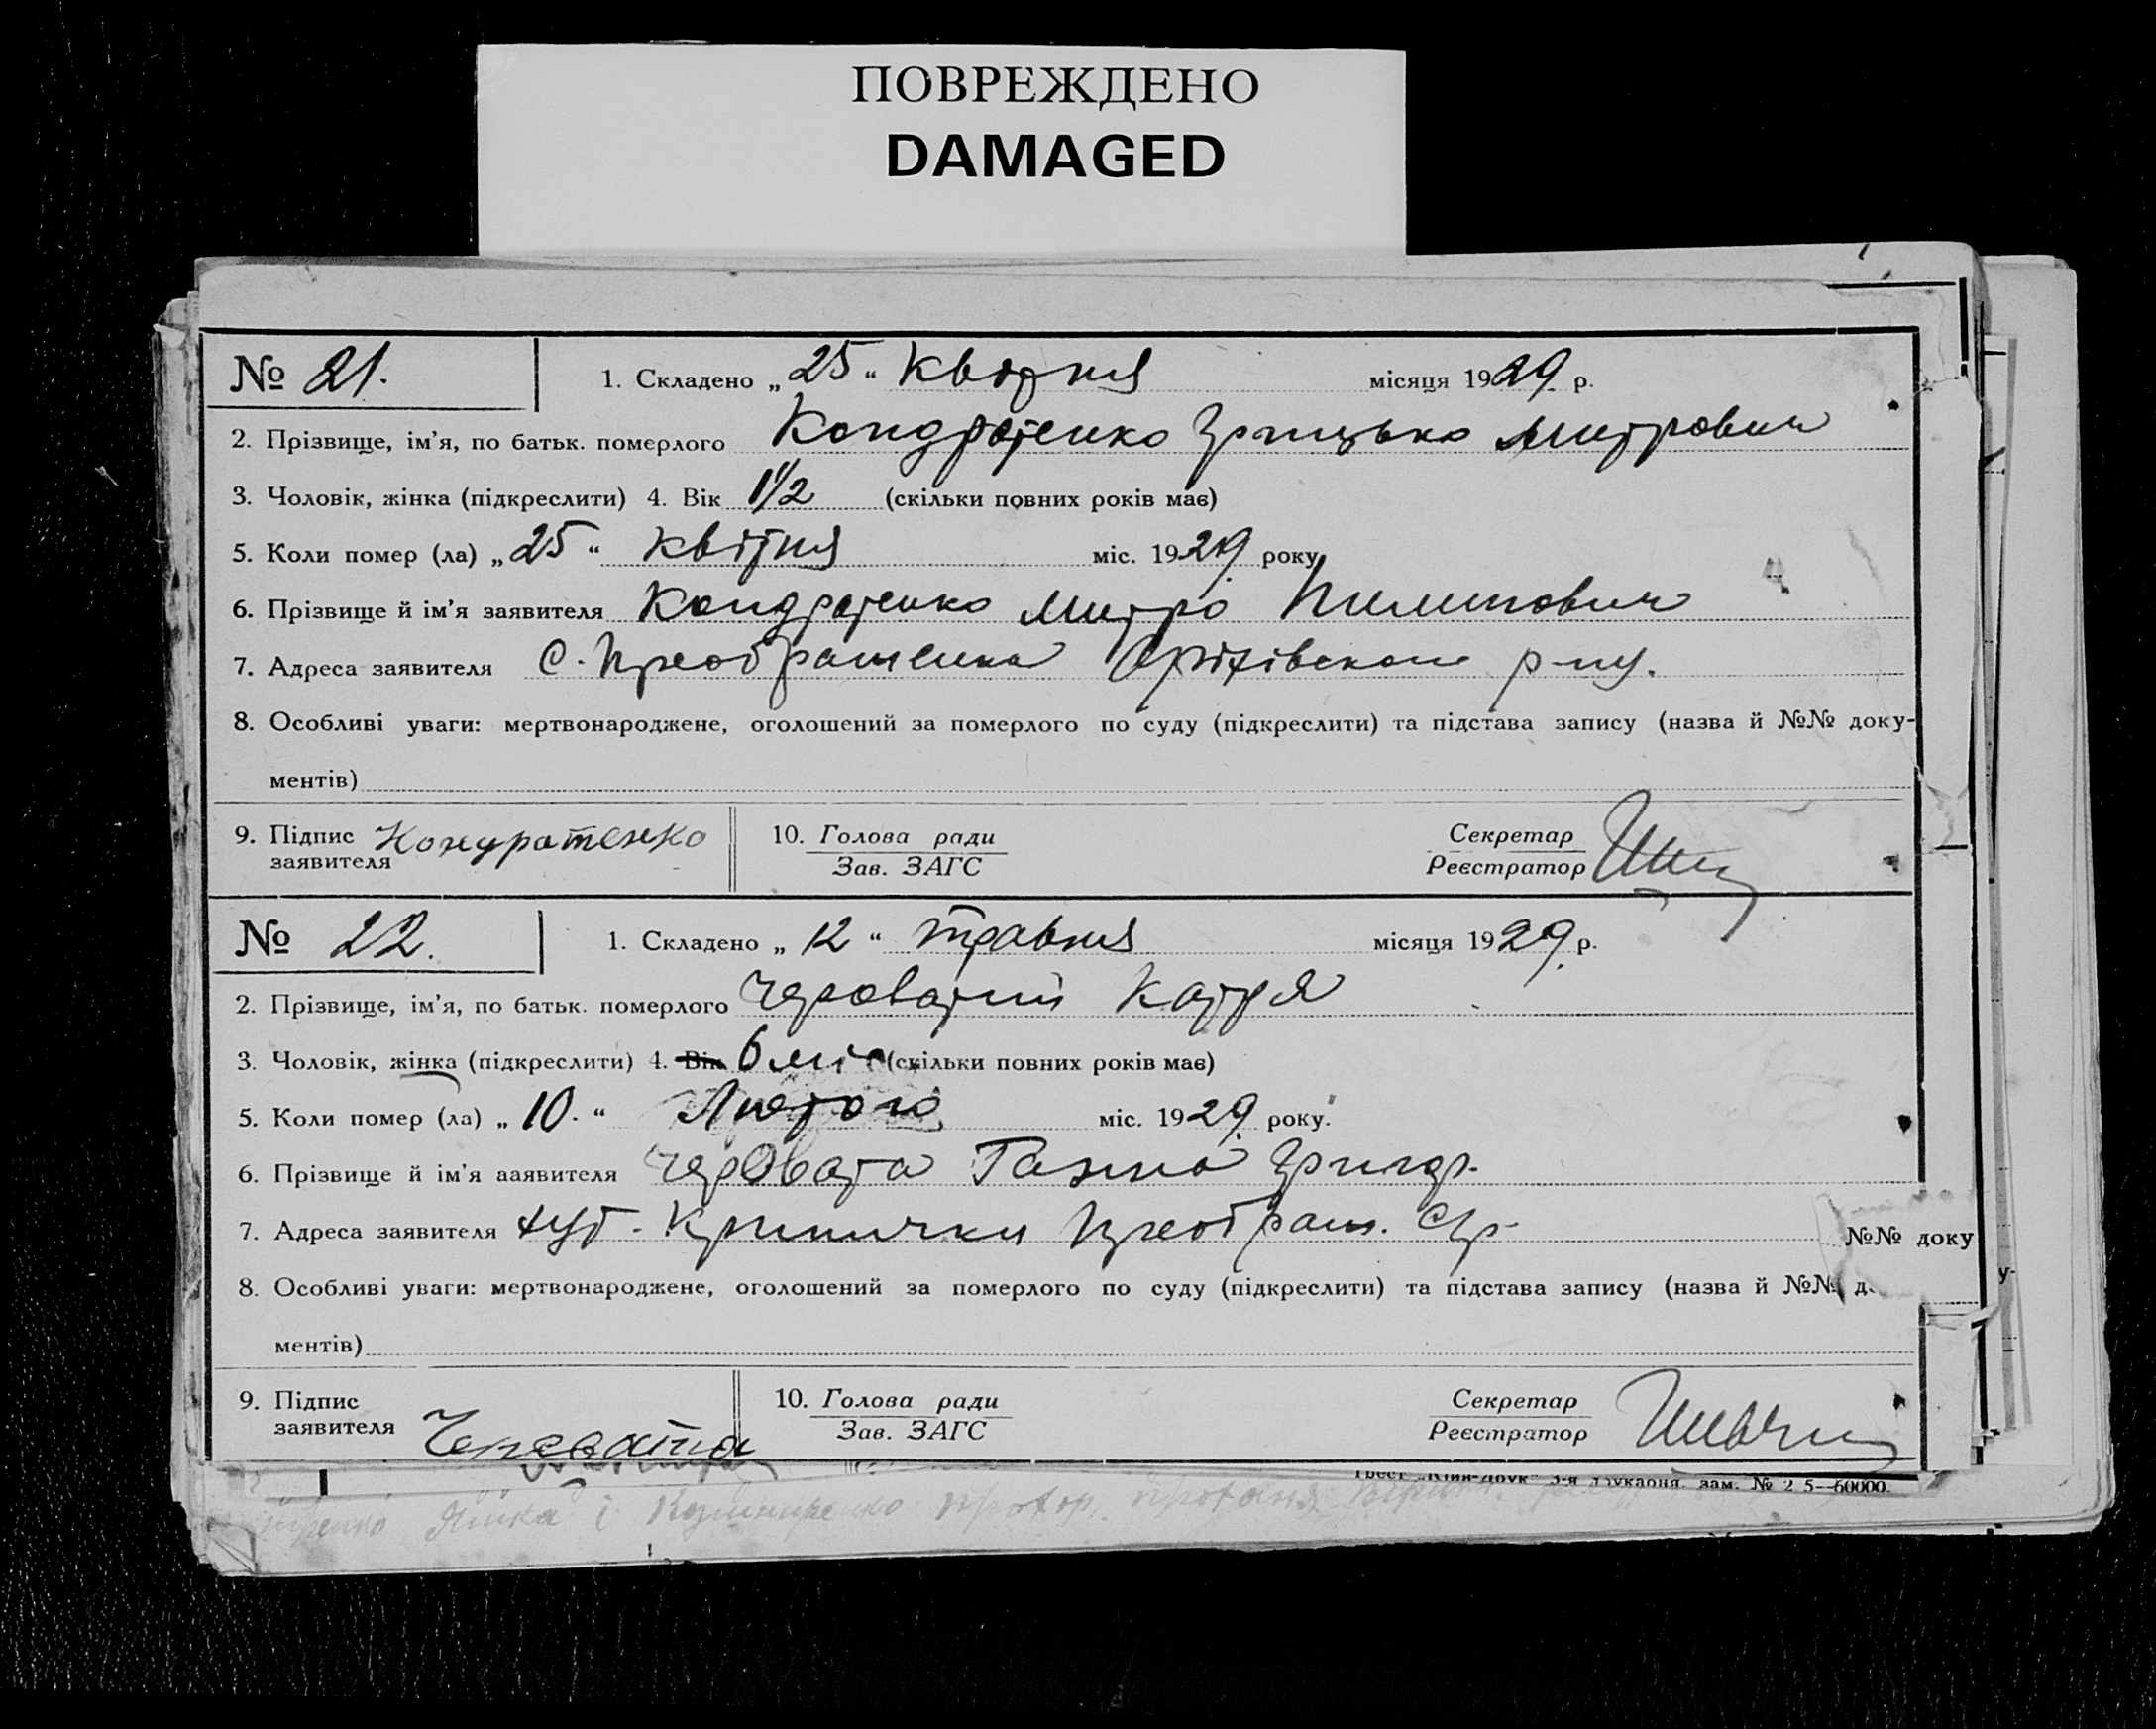 ПОВРЕЖДЕНО
DAMAGED
№ 21. 1. Складено „25“ Квітня місяця 1929 р.
2. Прізвище, ім'я, по батьк. померлого Кондратенко Грицько Митрович
3. Чоловік, жінка (підкреслити) 4. Вік 1 1/2 (скільки повних років має)
5. Коли помер (ла) „25“ квітня міс. 1929 року
6. Прізвище й ім'я заявителя Кондратенко Митро Пилипович
7. Адреса заявителя с. Преображенка Оріхівского р-ну.
8. Особливі уваги: мертвонароджене, оголошений за померлого по суду (підкреслити) та підстава запису (назва й №№ доку-
ментів)
9. Підпис заявителя Кондратенко 10. Голова ради Секретар
Зав. ЗАГС Реєстратор
№ 22. 1. Складено „12“ травня місяця 1929 р.
2. Прізвище, ім'я, по батьк. померлого Череватий Катря
3. Чоловік, жінка (підкреслити) 4. Вік 6 міс (скільки повних років має)
5. Коли помер (ла) „10.“ Лютого міс. 1929 року.
6. Прізвище й ім'я ааявителя Черевата Ганна Григор.
7. Адреса заявителя хут. Кринички Преображ. с/р №№ доку
8. Особливі уваги: мертвонароджене, оголошений за померлого по суду (підкреслити) та підстава запису (назва й №№ д
ментів)
9. Підпис заявителя Черевата 10. Голова ради Секретар
Зав. ЗАГС Реєстратор
зам. № 2 5—60000.